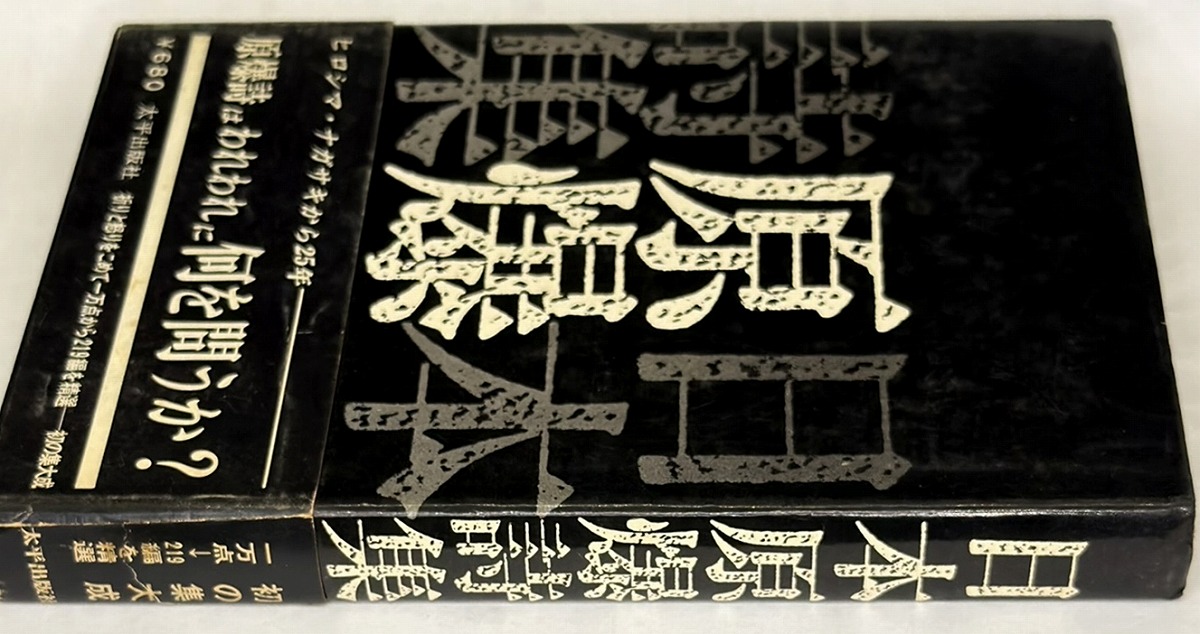 日本
原爆
詩集
ヒロシマ・ナガサキから25年
原爆詩はわれわれに何を問うか?
¥680 太平出版社 祈りと怒りをこめて一万点から219編を精選 初の集大成
日本原爆詩集
一万点→219編を精選
初の集大成
太平出版社